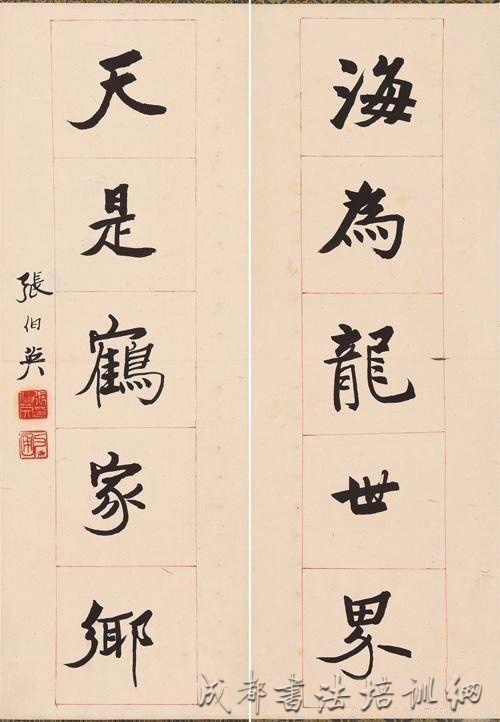 海為龍世界
天是鶴家鄉
張伯英
成都書法培訓網